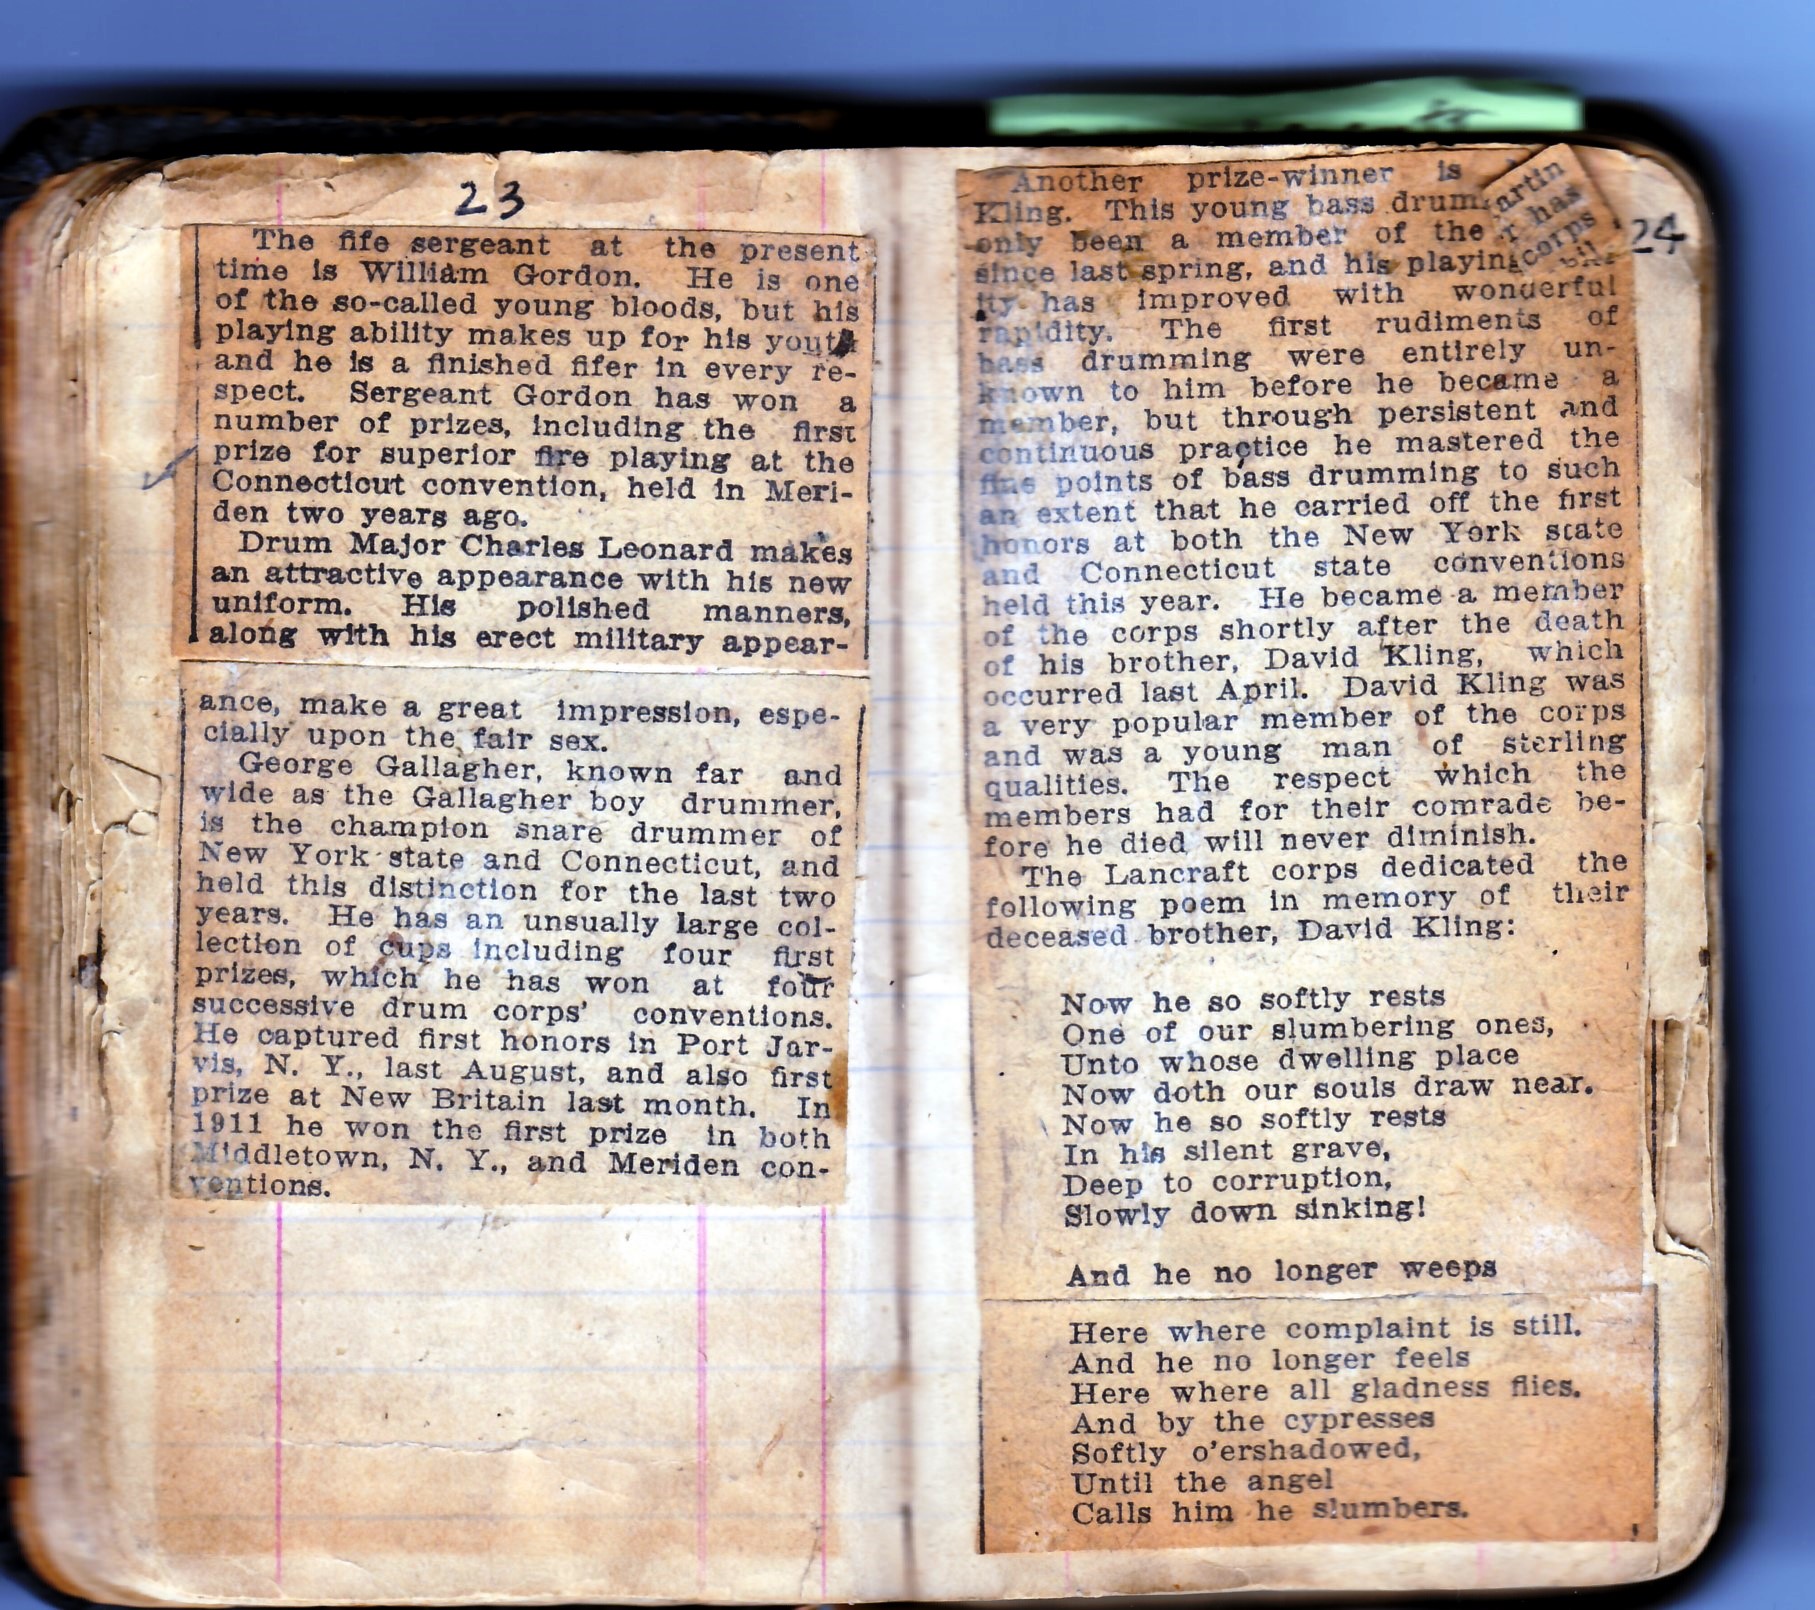 23
The fife sergeant at the present
time is William Gordon. He is one
of the so-called young bloods, but his
playing ability makes up for his youth
and he is a finished fifer in every re-
spect. Sergeant Gordon has won a
number of prizes, including the first
prize for superior fire playing at the
Connecticut convention, held in Meri-
den two years ago.
Drum Major Charles Leonard makes
an attractive appearance with his new
uniform. His polished manners,
along with his erect military appear-
ance, make a great impression, espe-
cially upon the fair sex.
George Gallagher, known far and
wide as the Gallagher boy drummer,
is the champion snare drummer of
New York state and Connecticut, and
held this distinction for the last two
years. He has an unsually large col-
lection of cups including four first
prizes, which he has won at four
successive drum corps' conventions.
He captured first honors in Port Jar-
vis, N. Y., last August, and also first
prize at New Britain last month. In
1911 he won the first prize in both
Middletown, N. Y., and Meriden con-
ventions.
24
Another prize-winner is artin
Kling. This young bass drum r has
only been a member of the corps
since last spring, and his playing bil-
ity has improved with wonderful
rapidity. The first rudiments of
bass drumming were entirely un-
known to him before he became a
member, but through persistent and
continuous practice he mastered the
fine points of bass drumming to such
an extent that he carried off the first
honors at both the New York state
and Connecticut state conventions
held this year. He became a member
of the corps shortly after the death
of his brother, David Kling, which
occurred last April. David Kling was
a very popular member of the corps
and was a young man of sterling
qualities. The respect which the
members had for their comrade be-
fore he died will never diminish.
The Lancraft corps dedicated the
following poem in memory of their
deceased brother, David Kling:
Now he so softly rests
One of our slumbering ones,
Unto whose dwelling place
Now doth our souls draw near.
Now he so softly rests
In his silent grave,
Deep to corruption,
Slowly down sinking!
And he no longer weeps
Here where complaint is still.
And he no longer feels
Here where all gladness flies.
And by the cypresses
Softly o'ershadowed,
Until the angel
Calls him he slumbers.